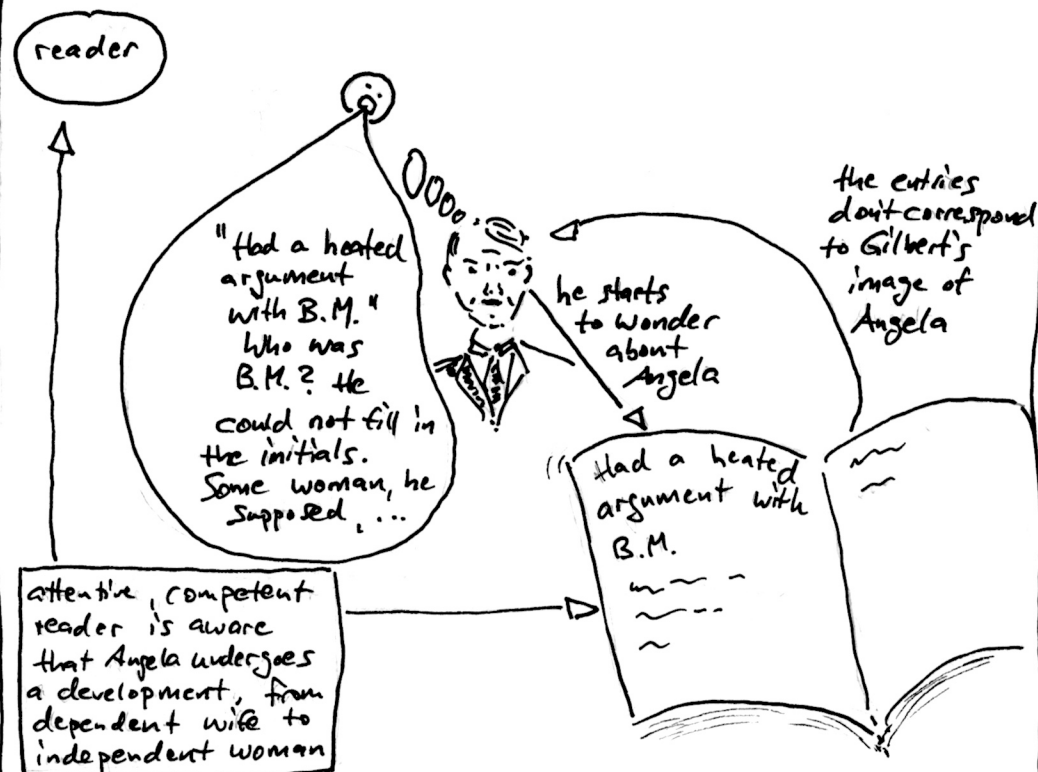 reader
"Had a heated
argument
with B.M."
Who was
B.M.? He
could not fill in
the initials.
Some woman, he
supposed, ...
he starts
to wonder
about
Angela
the entries
don't correspond
to Gilbert's
image of
Angela
Had a heated
argument with
B.M.
attentive, competent
reader is aware
that Angela undergoes
a development, from
dependent wife to
independent woman